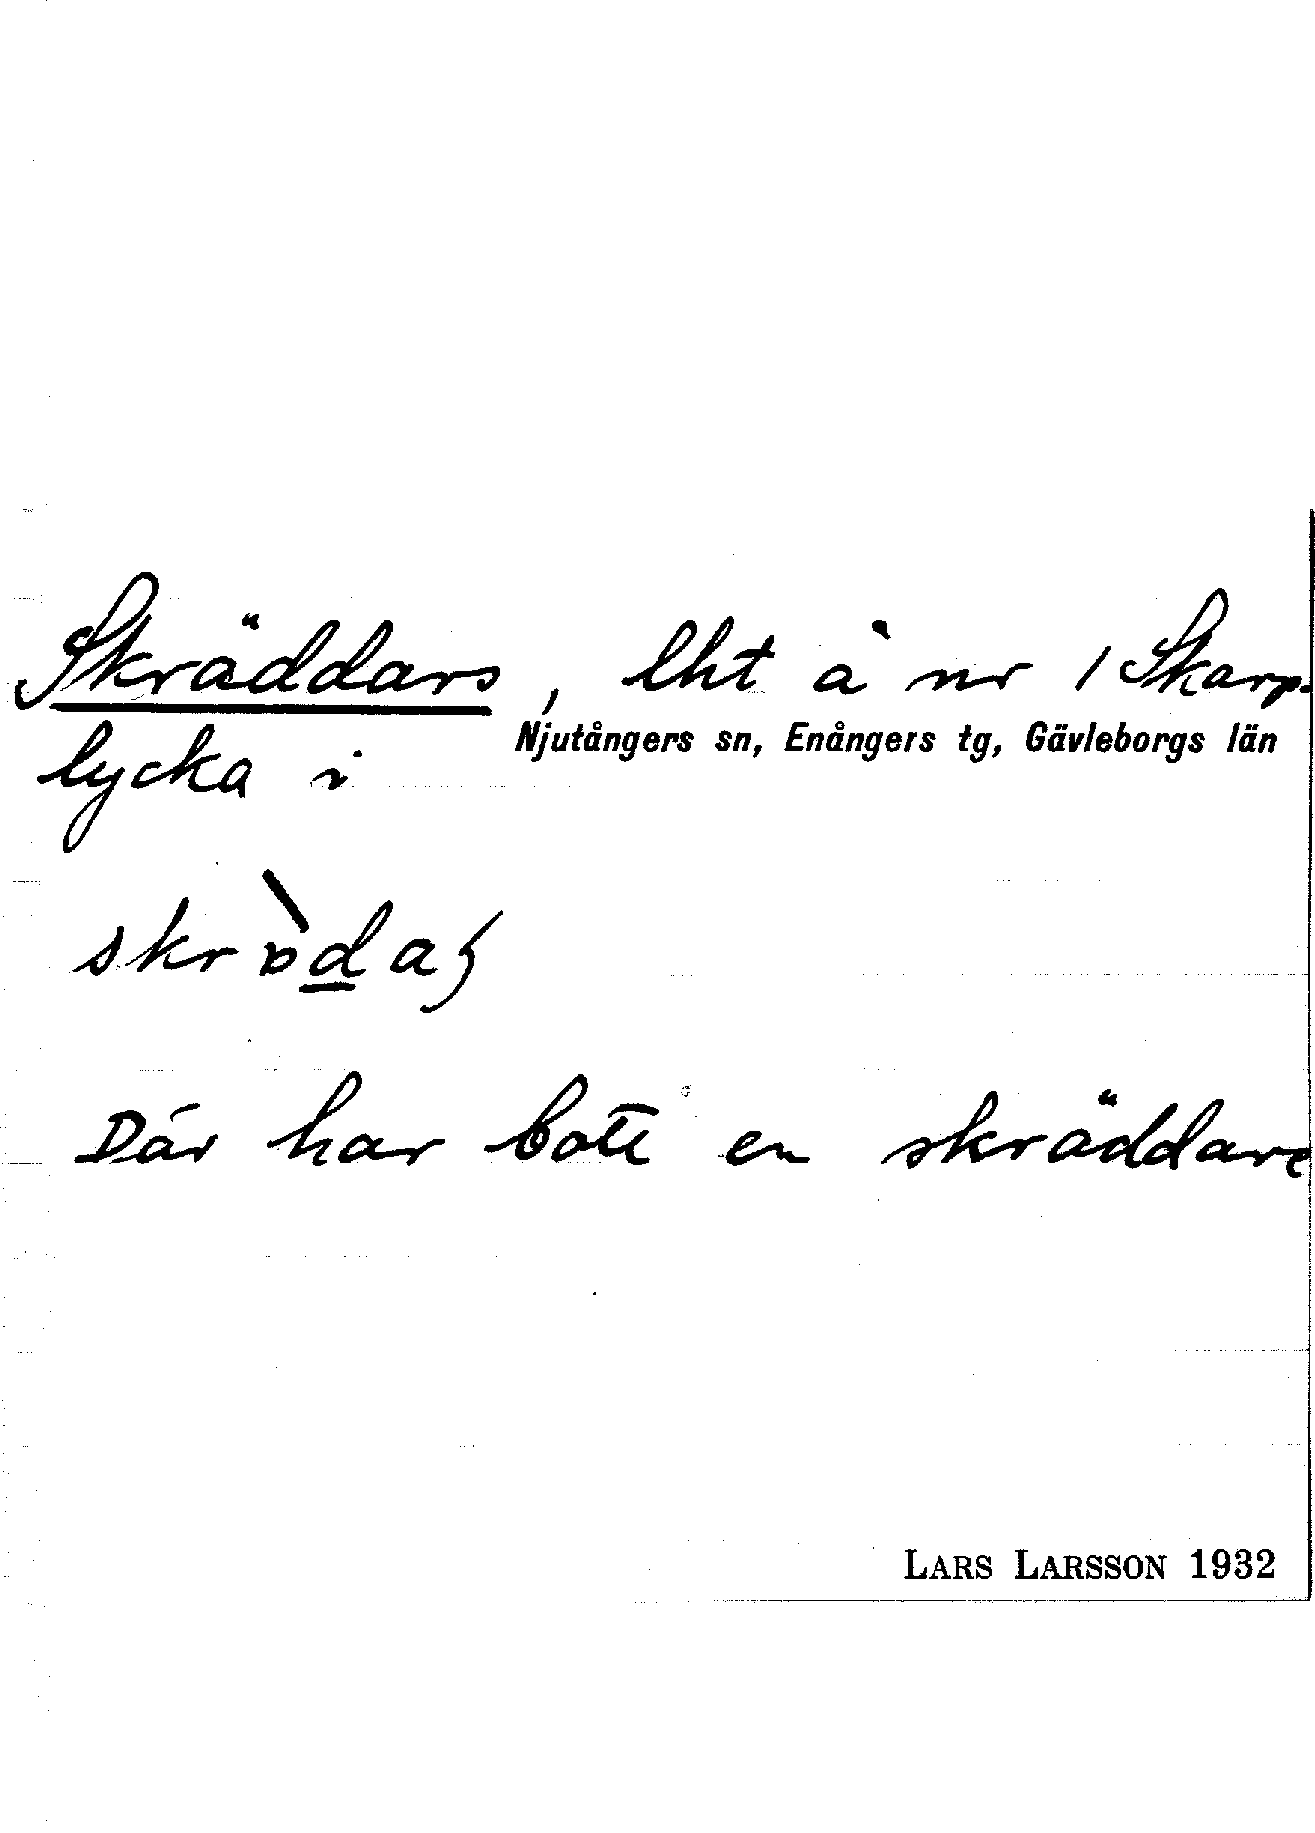 Skräddars, lht å nr 1 Skarp-
Njutångers sn, Enångers tg, Gävleborgs län
lycka i
Där har bott en skräddare
LARS LARSSON 1932